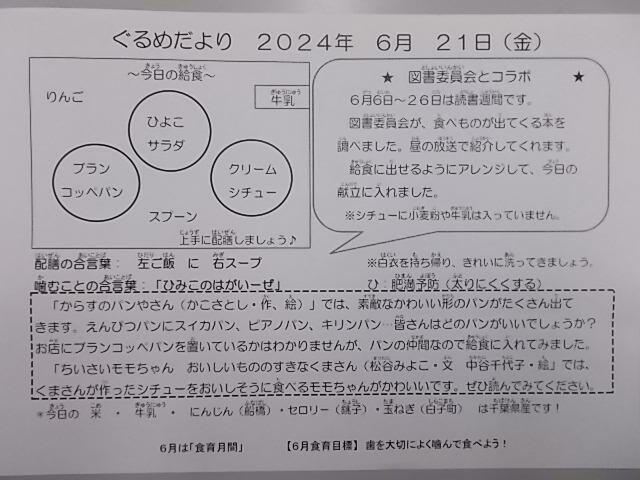 ぐるめだより　２０２４年　６月　２１日（金）
～今日の給食～
りんご
牛乳
ひよこ
サラダ
ブラン
コッペパン
クリーム
シチュー
スプーン
上手に配膳しましょう♪
★ 図書委員会とコラボ ★
６月６日～２６日は読書週間です。
図書委員会が、食べものが出てくる本を
調べました。昼の放送で紹介してくれます。
給食に出せるようにアレンジして、今日の
献立に入れました。
※シチューに小麦粉や牛乳は入っていません。
配膳の合言葉：　左ご飯　に　右スープ
※白衣を持ち帰り、きれいに洗ってきましょう。
噛むことの合言葉：「ひみこのはがいーぜ」
ひ：肥満予防（太りにくくする）
「からすのパンやさん（かこさとし・作、絵）」では、素敵なかわいい形のパンがたくさん出て
きます。えんぴつパンにスイカパン、ピアノパン、キリンパン…皆さんはどのパンがいいでしょうか？
お店にブランコッペパンを置いているかはわかりませんが、パンの仲間なので給食に入れてみました。
「ちいさいモモちゃん　おいしいもののすきなくまさん（松谷みよこ・文　中谷千代子・絵」では、
くまさんが作ったシチューをおいしそうに食べるモモちゃんがかわいいです。ぜひ読んでみてください。
※今日の　米　・　牛乳　・　にんじん（船橋）・セロリー（銚子）・玉ねぎ（白子町）　は千葉県産です！
６月は「食育月間」　【６月食育目標】歯を大切によく噛んで食べよう！